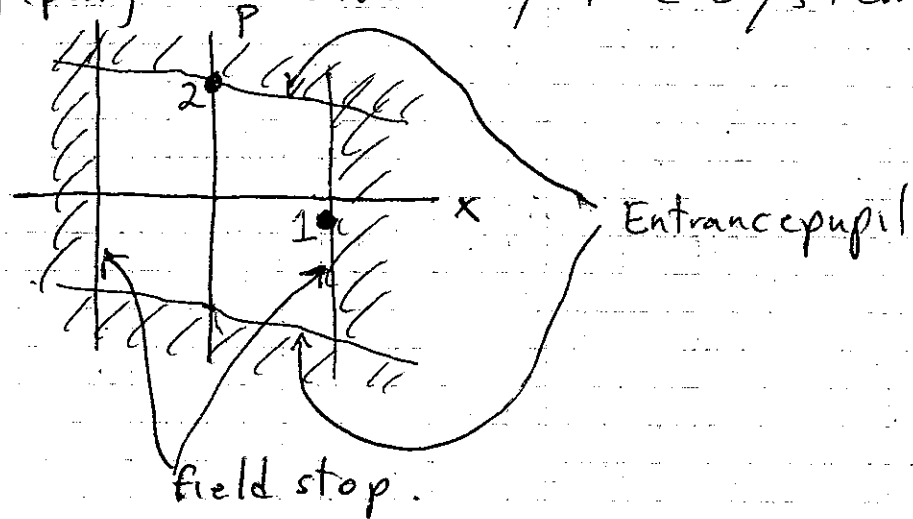 P
2
x
1
Entrancepupil
field stop.